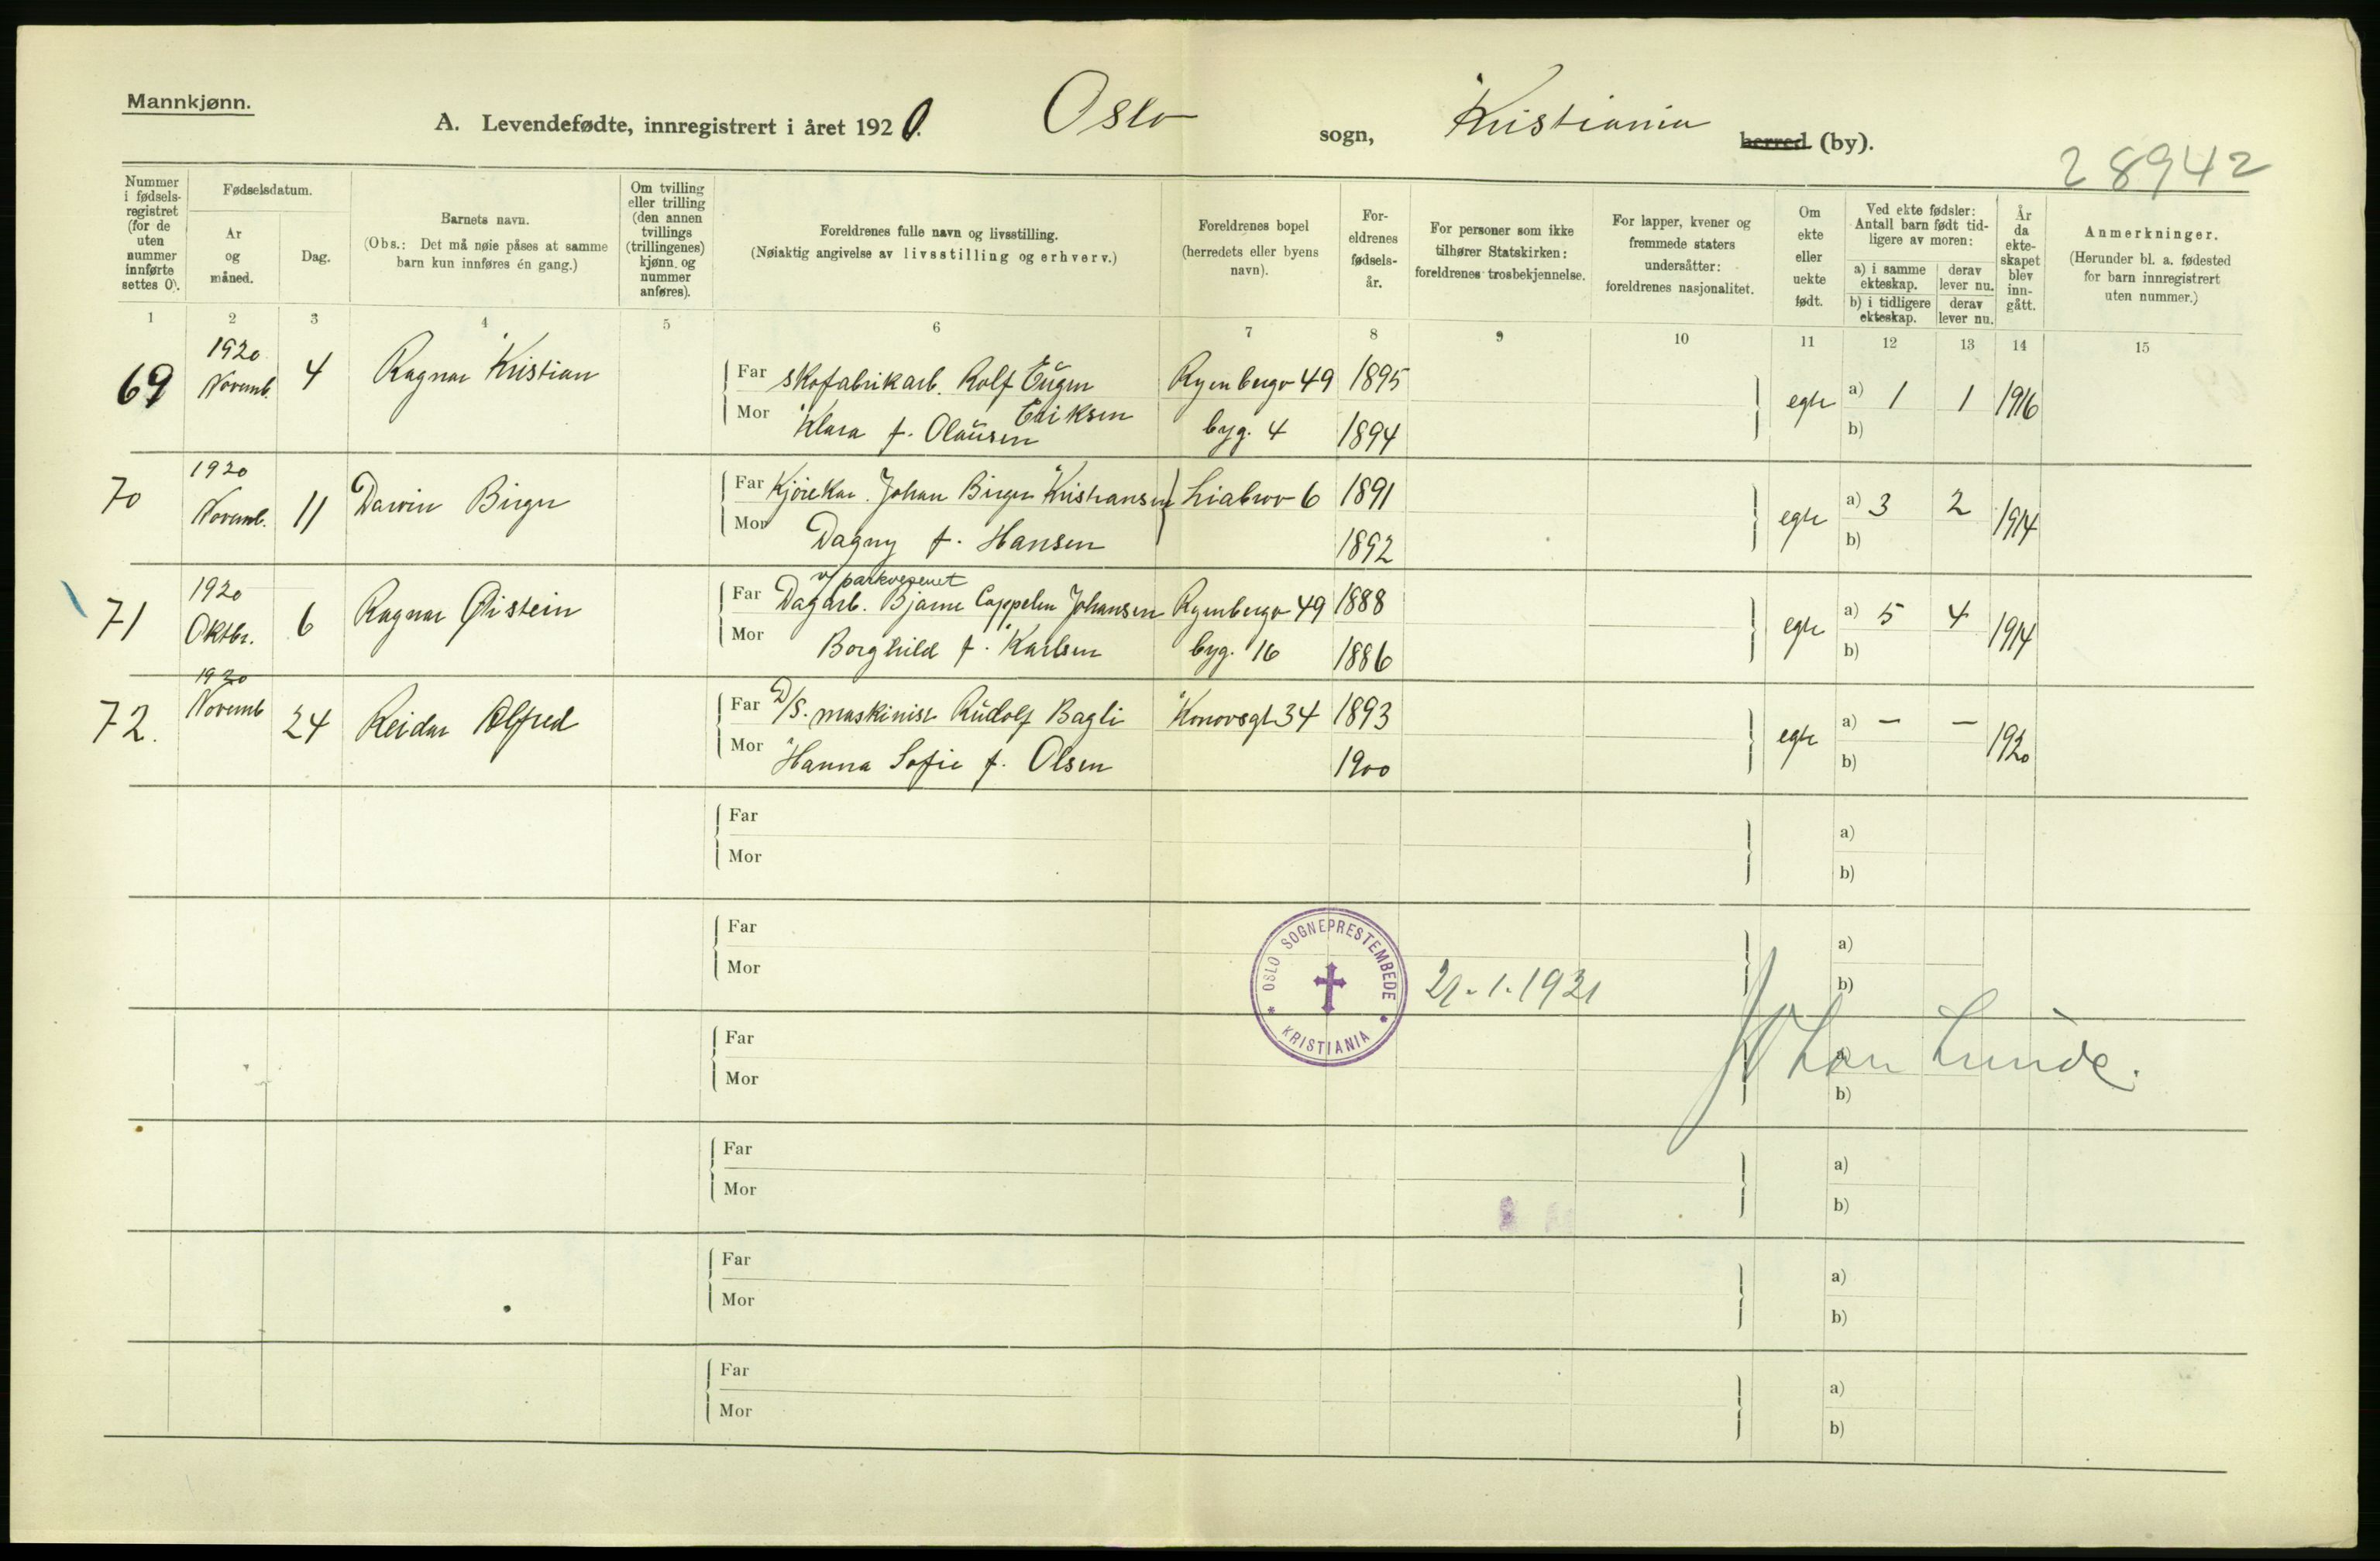 Mannkjønn.
A. Levendefødte, innregistrert i året 1920. Oslo sogn, Kristiania herred (by).
28942
Nummer i fødsels-registret (for de uten nummer innførte settes 0).
Fødselsdatum.
År og måned.
Dag.
Barnets navn.
(Obs.: Det må nøie påses at samme barn kun innføres én gang.)
Om tvilling eller trilling (den annen tvillings (trillingenes) kjønn, og nummer anføres).
Foreldrenes fulle navn og livsstilling.
(Nøiaktig angivelse av livsstilling og erhverv.)
Foreldrenes bopel (herredets eller byens navn).
For-eldrenes fødsels-år.
For personer som ikke tilhører Statskirken: foreldrenes trosbekjennelse.
For lapper, kvener og fremmede staters undersåtter: foreldrenes nasjonalitet.
Om ekte eller uekte født.
Ved ekte fødsler: Antall barn født tid-ligere av moren:
a) i samme ekteskap. derav lever nu.
b) i tidligere ekteskap. derav lever nu.
År da ekte-skapet blev inn-gått.
Anmerkninger.
(Herunder bl. a. fødested for barn innregistrert uten nummer.)
1 2 3 4 5 6 7 8 9 10 11 12 13 14 15
69 1920 Novemb. 4 Ragnar Kristian
Far Skofabrikarb. Rolf Eugen Eriksen Ryenbergv 49 1895
Mor Klara f. Olausen byg. 4 1894
egte a) 1 1 1916
b)
70 1920 Novemb. 11 Darvin Birger
Far Kjørekar. Johan Birger Kristiansen Liabrov 6 1891
Mor Dagny f. Hansen 1892
egte a) 3 2 1914
b)
71 1920 Oktbr. 6 Ragnar Øistein
v/ parkvesenet
Far Dagarb. Bjarne Cappelen Johansen Ryenbergv 49 1888
Mor Borghild f. Karlsen byg. 16 1886
egte a) 5 4 1914
b)
72. 1920 Novemb 24 Reidar Alfred
Far D/S. maskinist Rudolf Bagli Konowsgt 34 1893
Mor Hanna Sofie f. Olsen 1900
egte a) — — 1920
b)
Far a)
Mor b)
Far a)
Mor b)
OSLO SOGNEPRESTEMBEDE * KRISTIANIA *
21.-1.-1921
Johan Lunde.
Far a)
Mor b)
Far a)
Mor b)
Far a)
Mor b)
Far a)
Mor b)